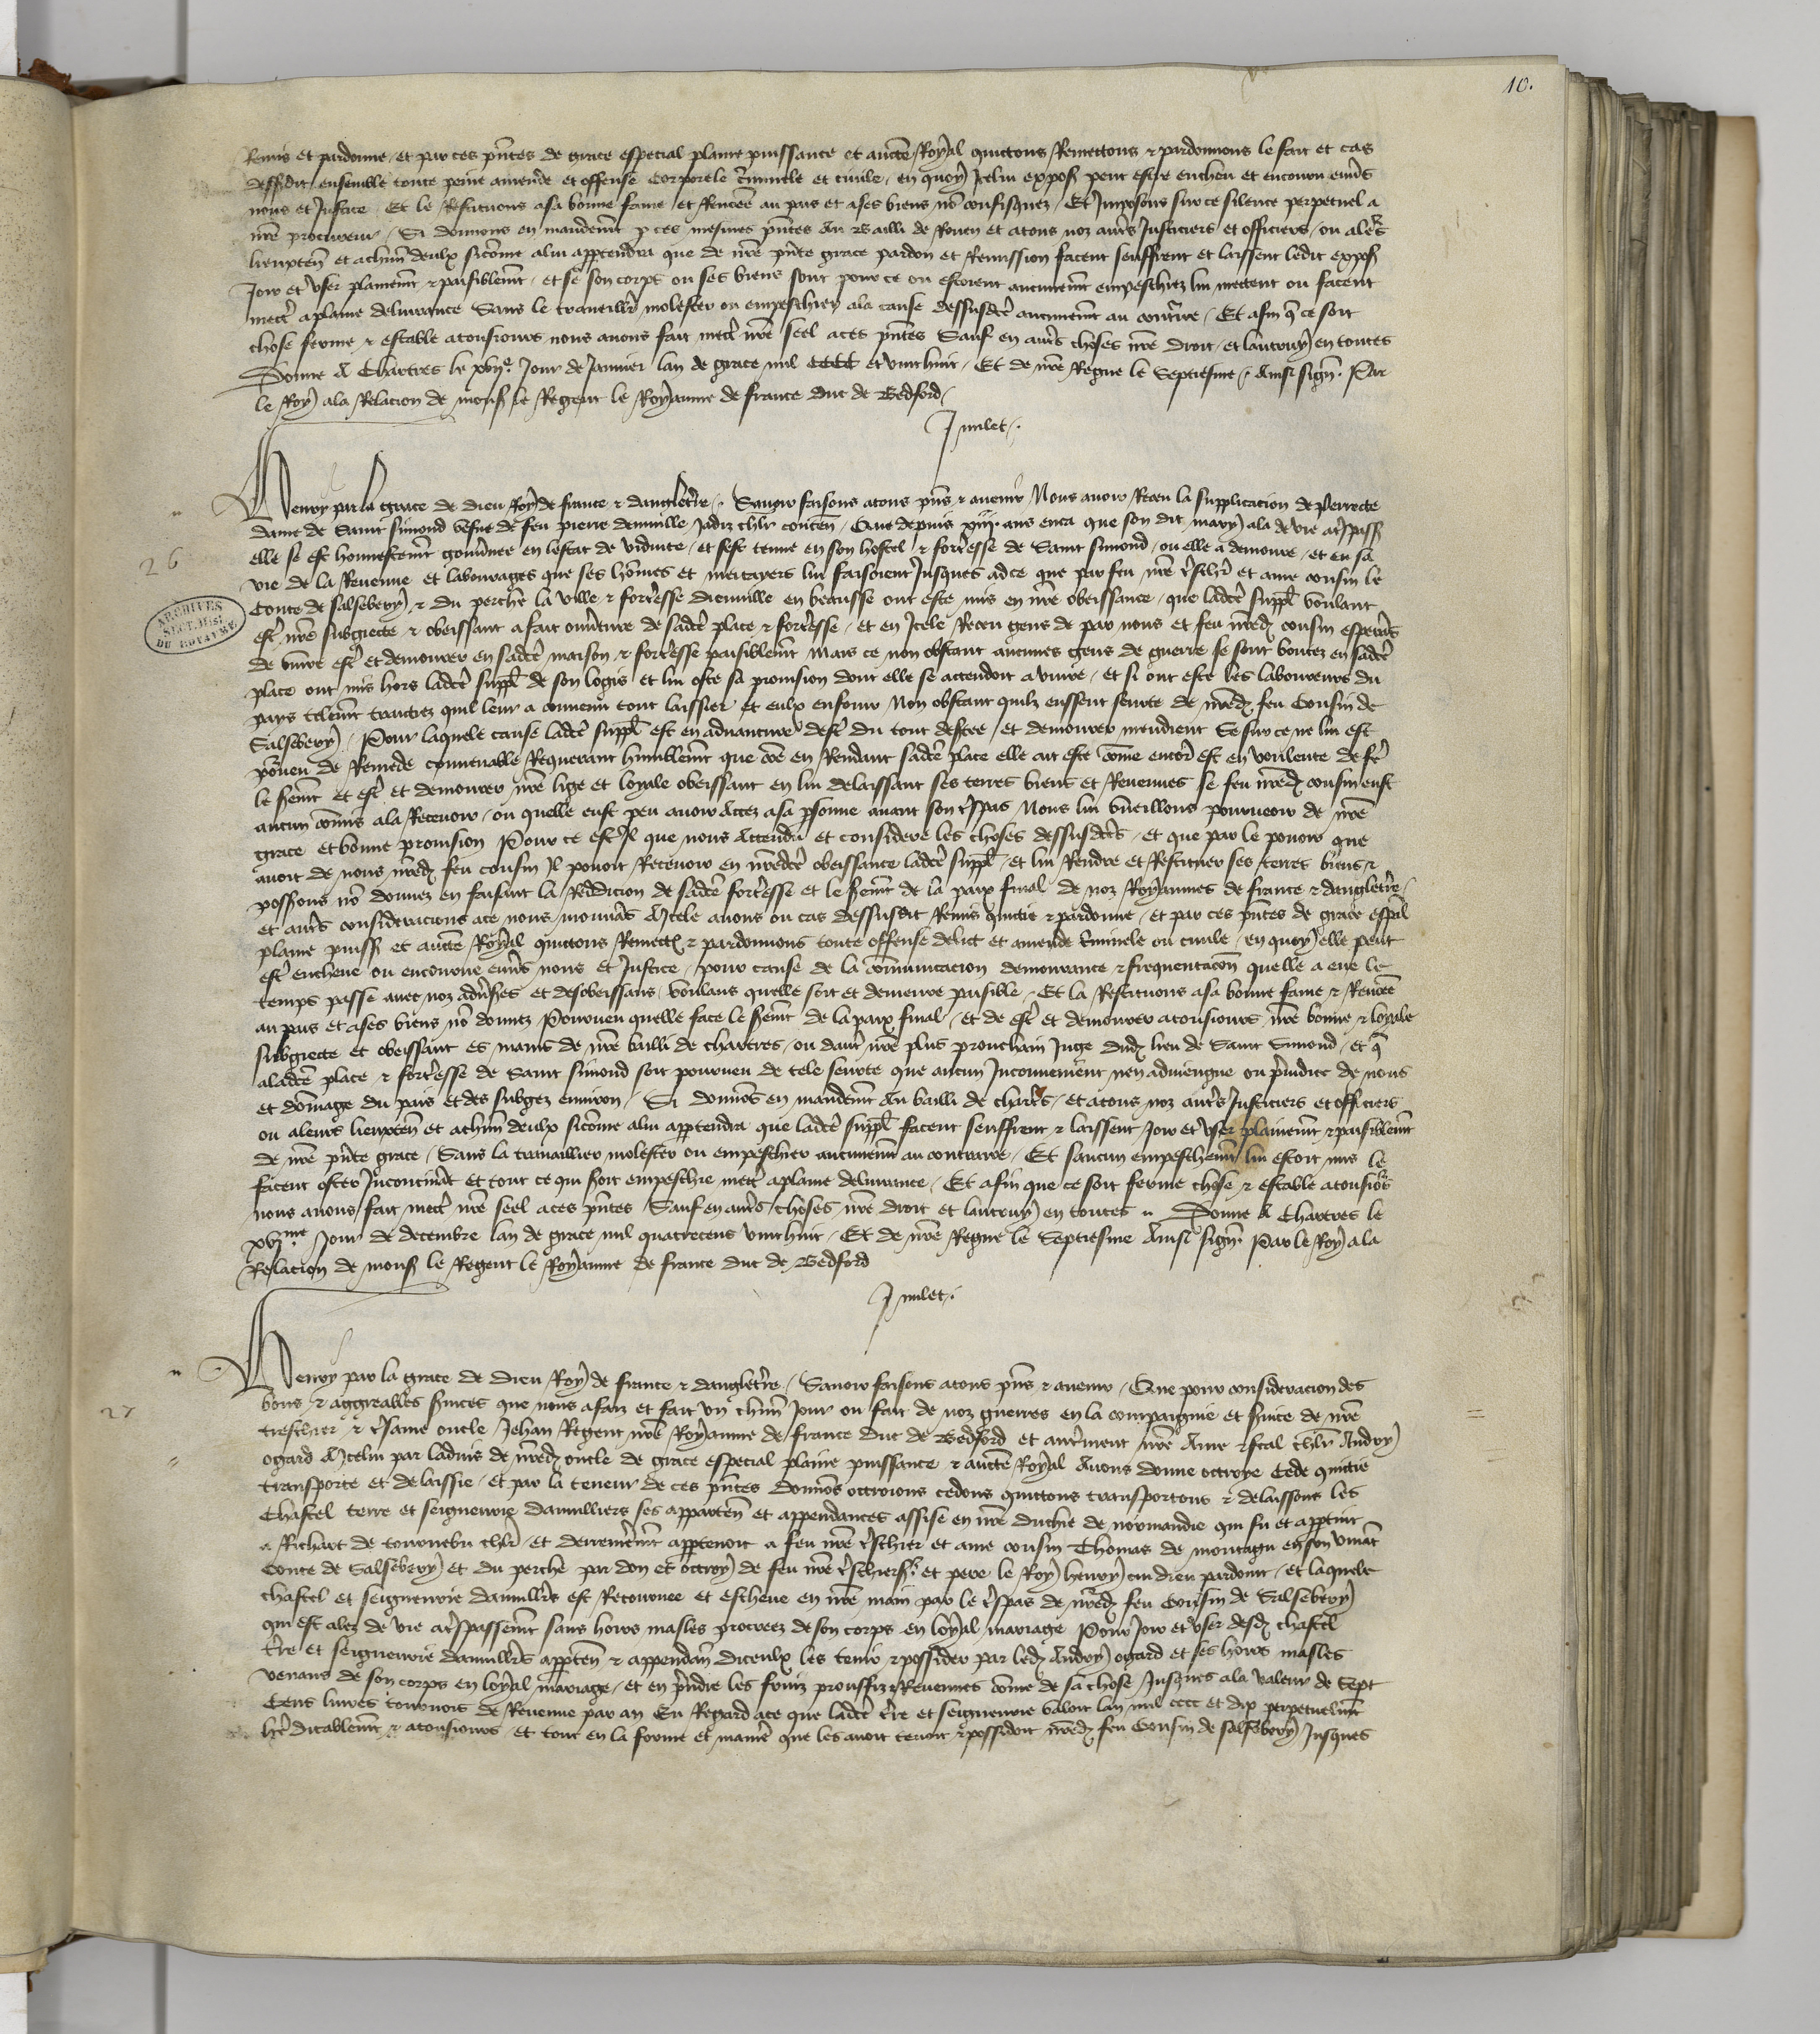 10.
Remis et pardonne et par ces pñtes de grace especial plaine puissance et aucte Royal quittons Remettons & pardonnons le fait et cas
dessusdit ensemble toute peine amende et offense corporele cĩminele et civile en quoy Icelui expoſ peut estre encheu et encouru envs
nous et Justice Et le Restituons a sa bonne fame et Renõee au pais et a ses biens nõ confisquez Et Imposons sur ce silence perpetuel a
nr̃e procureur Si donnons en mandemẽt p ces mesmes pñtes Au Bailli de Rouen et a tous noz aut̃s Justiciers et officiers ou a leᵣs
lieuxteñ et achũn deulx sicõme a lui app̃tendra que de nr̃e pñte grace pardon et Remission facent seuffrent et laissent ledit expoſ
Joir et user plainemẽt & paisiblemẽt et se son corps ou ses biens sont pour ce ou estoient aucunemẽt empeschiez lui mettent ou facent
mect̃ a plaine delivrance Sans le travaillier molester ou empeschier a la cause dessusdc̃e aucunemẽt au contr̃ire Et afin q̃ ce soit
chose ferme & estable a tousiours nous avons fait mect̃ nr̃e seel a ces pñtes Sauf en aut̃s choses nr̃e droit et lautruy en toutes
Donne A Chartres le xviijᵉ Jour de Janvier lan de grace mil CCCC et vint huit Et de nr̃e Regne le Septiesme Ainsi signe Par
le Roy a la Relacion de monſ le Regent le Royaume de france duc de Bedford
J milet
26
Henry par la grace de dieu Roy de france & dangleterre Savoir faisons a tous pñs & avenir Nous avoir Receu la supplicacion de Perrette
dame de Saint Simond vefve de feu pierre denuille Jadiz chlr̃ conteñ Que depuis xiiij ans enca que son dit mary ala de vie a tr̃spaſ
elle se est honnestemẽt gouv̾nee en lestat de viduite et sest tenue en son hostel & fort̾esse de Saint Simond ou elle a demoure et en sa
vie de la Revenue et labourages que ses hõmes et mectayers lui faisoient Jusques ad ce que par feu nr̃e tr̃schr̃ et ame cousin le
Conte de Salsebery & du perche la ville & fort̾esse dienville en beausse ont este mis en nr̃e obeissance que ladc̃e suppl̃ voulant
est̾ nr̃e subgiecte & obeissant a fait ouv̾ture de sadc̃e place & fort̾esse et en Icele Receu gens de par nous et feu nr̃edꝫ cousin esperãs
de vivre est̾ et demourer en sadc̃e maison & fort̾esse paisiblemẽt Mais ce non obstant aucunes gens de guerre se sont boutez en sadc̃e
place ont mis hors ladc̃e suppl̃ de son logis et lui oste sa provision dont elle se attendoit a vivre et si ont este les laboureurs du
pays telemẽt traictiez quil leur a convenu tout laissier et eulx enfouir Non obstant quilz eussent seurte de nr̃edꝫ feu Cousin de
Salsebery Pour laquele cause ladc̃e suppl̃ est en advanture dest̾ du tout deserte et demourer mendient Se sur ce ne lui est
pourveu de Remede convenable Requerant humblemẽt que cõe en Rendant sadc̃e place elle ait este cõme encor̃ est en voulente de fe̾
le s̾emẽt et est̾ et demourer nr̃e lige et loyale obeissant en lui delaissant ses terres biens et Revenues se feu nr̃edꝫ cousin eust
aucun cõmis a la Recevoir ou quelle eust peu avoir Accez a sa p̾sonne avant son tr̃spas Nous lui vueillons pourveoir de nr̃e
grace et bonne provision Pour ce est Jl que nous Attendu et considere les choses dessusdc̃es et que par le povoir que
avoit de nous nr̃edꝫ feu cousin Jl povoit Recevoir en nr̃edc̃e obeissance ladc̃e suppl̃ et lui Rendre et Restituer ses terres biens &
possõns nõ donnez en faisant la Reddicion de sadc̃e fort̾esse et le s̾emẽt de la paix final de noz Royaumes de france & dangleterre
et aut̃s consideracions a ce nous mouvãs A Icele avons ou cas dessusdit Remis quitte & pardonne et par ces pñtes de grace esp̃al
plaine puiſſ et aucte Royal quittons Remectõs & pardonnons toute offense delict et amende cĩminele ou civile en quoy elle peut
est̾ encheue ou encourue envs nous et Justice pour cause de la cõmunicacion demourance & frequentacõn quelle a eue le
temps passe avec noz adv̾s̾es et desobeissans voulans quelle soit et demeure paisible Et la Restituons a sa bonne fame & Renõee
au pais et a ses biens nõ donnez Pourveu quelle face le s̾emẽt de la paix final et de est̾ et demourer a tousiours nr̃e bonne & loyale
subgiecte et obeissant es mains de nr̃e bailli de chartres ou daut̾ nr̃e plus prouchain Juge dudꝫ lieu de Saint Simond et q̃
a ladc̃e place & fort̾esse de Saint Simond soit pourveu de tele seurte que aucun Jnconvenient nen adviengne ou p̾iudice de nous
et dõmage du pais et des subgez environ Si donnõs en mandemẽt Au bailli de chart̾s et a tous noz aut̾s Justiciers et officiers
ou a leurs lieuxteñ et achũn deulx sicõme a lui app̃tendra que ladc̃e suppl̃ facent seuffrent & laissent Joir et user plainemẽt & paisiblemẽt
de nr̃e pñte grace Sans la travaillier molester ou empeschier aucunemẽt au contraire Et saucun empeschemẽt lui estoit mis le
facent oster Jncontinẽt et tout ce qui seroit empeschie mect̾ a plaine delivrance Et afin que ce soit ferme chose & estable a tousiõrs
nous avons fait mect̾ nr̃e seel a ces pñtes Sauf en aut̾s choses nr̃e droit et lautruy en toutes Donne A Chartres le
xvjᵐᵉ Jour de decembre lan de grace mil quatrecens vint huit Et de nr̃e Regne le Septiesme Ainsi signe Par le Roy a la
Relacion de monſ le Regent le Royaume de france duc de Bedford
J milet
ARCHIVES
SECT. HIST.
DU ROYAUME
27
Henry par la grace de dieu Roy de france & dangleterre Savoir faisons a tous pñs & avenir Que pour consideracion des
bons & aggreables s̾vices que nous a faiz et fait un chũn Jour ou fait de noz guerres en la compaignie et s̾vice de nr̃e
treschier & tr̃same oncle Jehan Regent nr̃e Royaume de france duc de Bedford et autrement nr̃e Ame & feal chlr̃ Andry
ogard A Icelui par ladvis de nr̃edꝫ oncle de grace especial plaine puissance & aucte Royal Avons donne octroye Cede quitte
transporte et delaissie et par la teneur de ces pñtes donnõs octroions cedons quittons transportons & delaissons les
Chastel terre et seigneurie danvilliers ses apparteñ et appendances assise en nr̃e duchie de normandie qui fu et app̃tint
a Richart de tournebu chlr̃ et derrenieremẽt app̃tenoit a feu nr̃e tr̃schier et ame cousin Thomas de montagu en son vivãt
Conte de Salsebery et du perche par don et octroy de feu nr̃e tr̃schierſʳ et pere le Roy henry cui dieu pardoint et laquele
chastel et seigneurie danvillie̾s est Retournee et escheue en nr̃e main par le tr̃spas de nr̃edꝫ feu Cousin de Salsebery
qui est alez de vie a tr̃spassemẽt sans hoirs masles procreez de son corps en loyal mariage Pour Joir et user desdꝫ chastel
tr̃re et seigneurie danvillie̾s app̃teñ & appendañ diceulx les tenir & possider par ledꝫ Andry ogard et ses hoirs masles
venans de son corps en loyal mariage et en p̾ndre les fruiz prouffiz & Revenues cõme de sa chose Jusques a la valeur de Sept
Cens livres tournois de Revenue par an Eu Regard a ce que ladc̃e tr̃re et seigneurie valoit lan mil cccc et dix perpetuelmẽt
he̾ditablemẽt & a tousiours et tout en la forme et manie̾ que les avoit tenoit & possidoit nr̃edꝫ feu Cousin de Salsebery Jusques